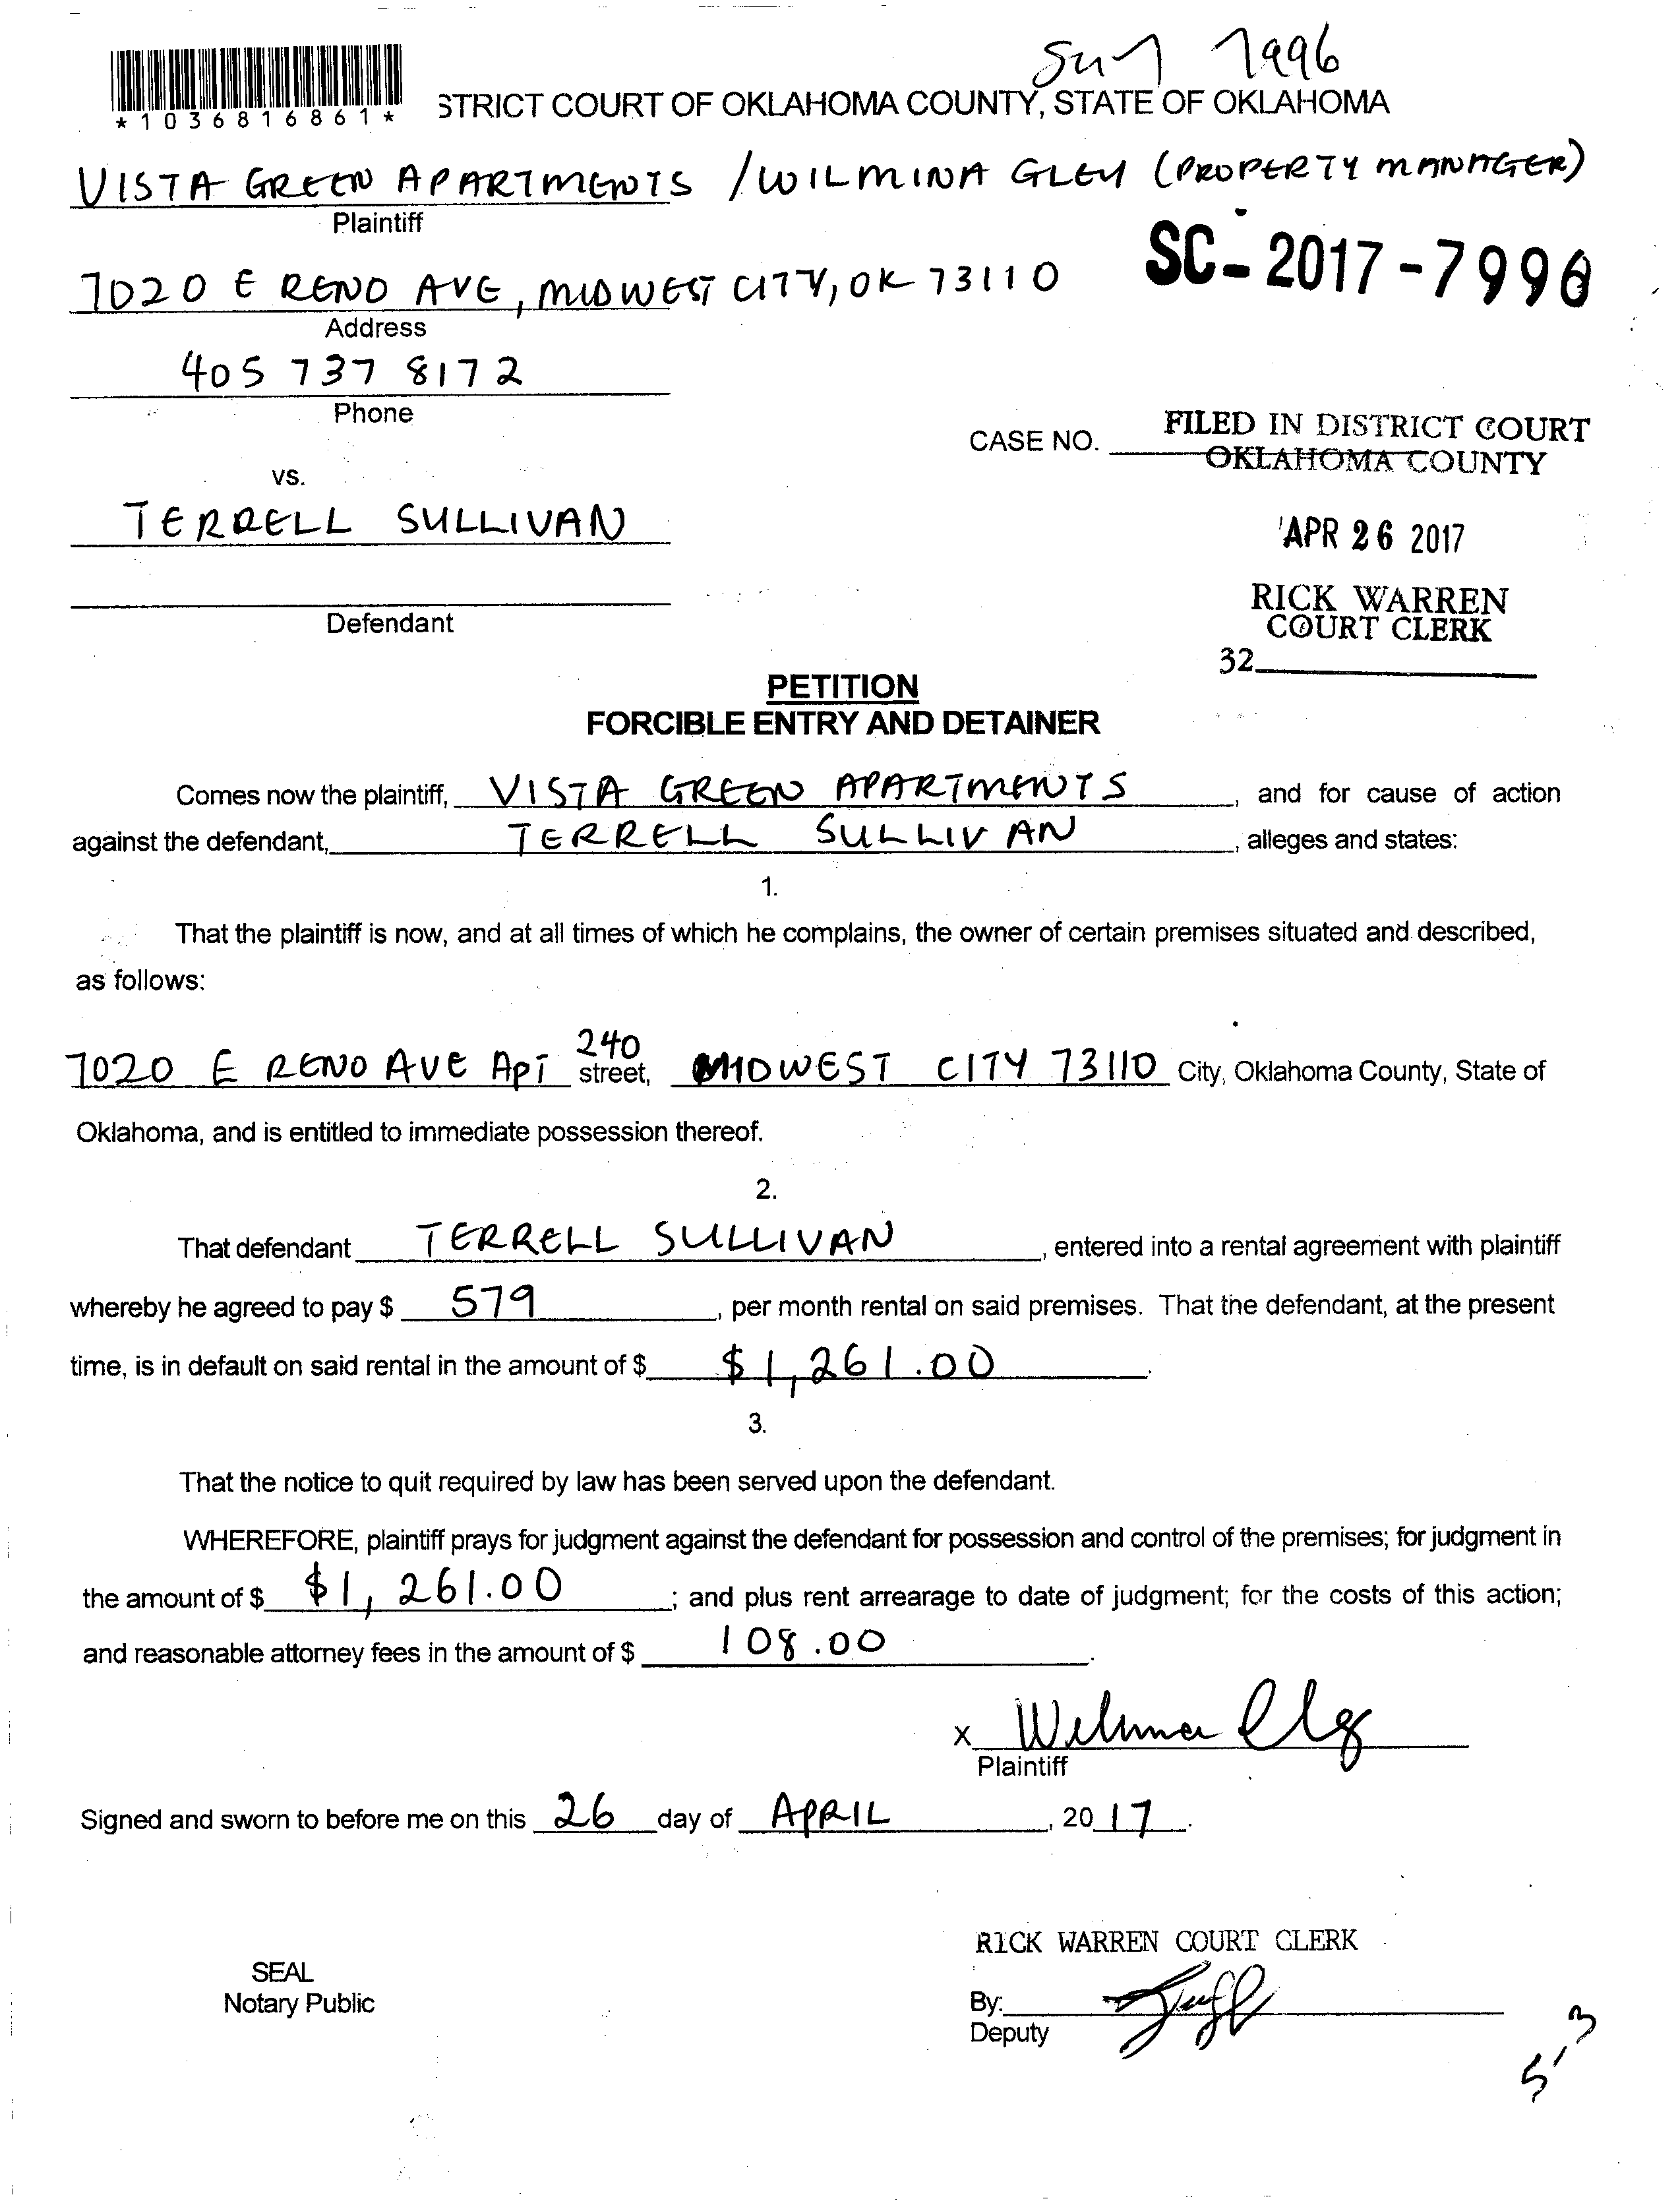 7996
*1036816861*
STRICT COURT OF OKLAHOMA COUNTY, STATE OF OKLAHOMA
VISTA GREEN APARTMENTS / WILMINA GLEY (PROPERTY MANAGER)
Plaintiff
SC-2017-7996
7020 E RENO AVE, MIDWEST CITY, OK 73110
Address
405 737 8172
Phone
CASE NO.
FILED IN DISTRICT COURT
OKLAHOMA COUNTY
vs.
TERRELL SULLIVAN
APR 26 2017
Defendant
RICK WARREN
COURT CLERK
32
PETITION
FORCIBLE ENTRY AND DETAINER
Comes now the plaintiff, VISTA GREEN APARTMENTS, and for cause of action
against the defendant, TERRELL SULLIVAN, alleges and states:
1.
That the plaintiff is now, and at all times of which he complains, the owner of certain premises situated and described,
as follows:
7020 E RENO AVE APT 240 street, MIDWEST CITY 73110 City, Oklahoma County, State of
Oklahoma, and is entitled to immediate possession thereof.
2.
That defendant TERRELL SULLIVAN, entered into a rental agreement with plaintiff
whereby he agreed to pay $ 579, per month rental on said premises. That the defendant, at the present
time, is in default on said rental in the amount of $ $1,261.00.
3.
That the notice to quit required by law has been served upon the defendant.
WHEREFORE, plaintiff prays for judgment against the defendant for possession and control of the premises; for judgment in
the amount of $ $1,261.00; and plus rent arrearage to date of judgment; for the costs of this action;
and reasonable attorney fees in the amount of $ 108.00.
x
Plaintiff
Signed and sworn to before me on this 26 day of APRIL, 2017.
RICK WARREN COURT CLERK
SEAL
Notary Public
By:
Deputy